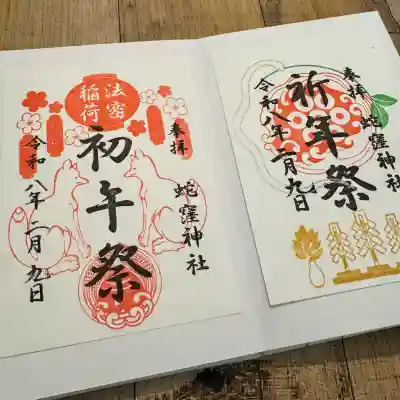 奉拝
法密
稲荷
初午祭
蛇窪神社
令和八年二月九日
奉拝
蛇窪神社
祈年祭
令和八年二月九日